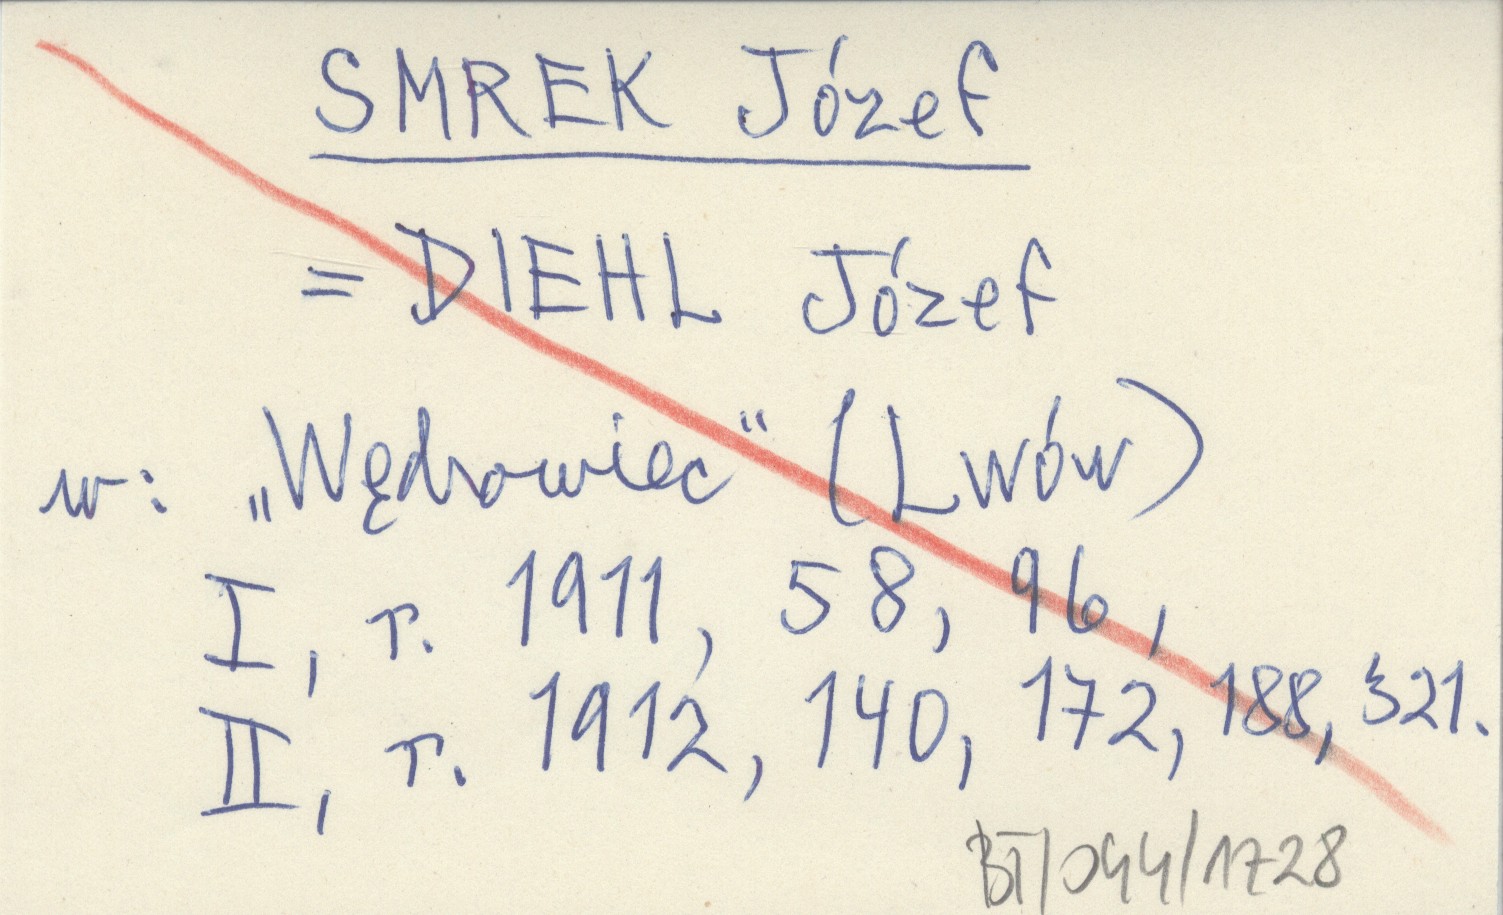 SMREK Józef
= DIEHL Józef
w: „Wędrowiec“ (Lwów)
I, r. 1911, 58, 96,
II, r. 1912, 140, 172, 188, 321.
BT/044/1728